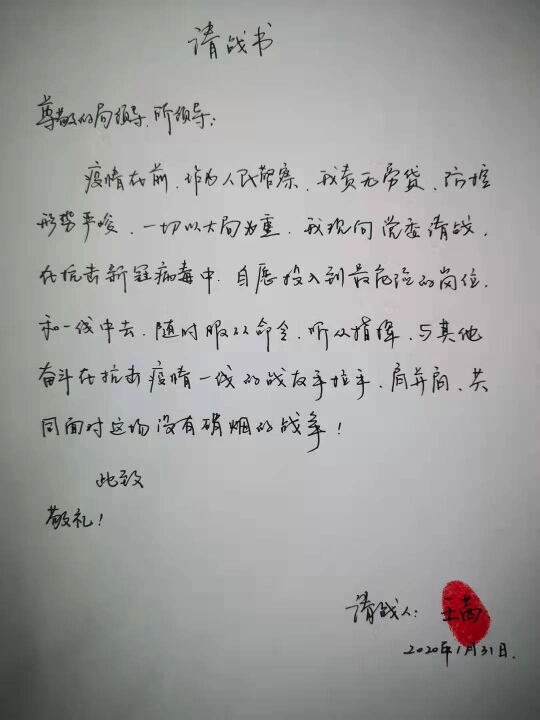 请战书
尊敬的局领导、所领导:
疫情在前,作为人民警察,我责无旁贷,防控
形势严峻,一切以大局为重,我现向党委请战,
在抗击新冠病毒中,自愿投入到最危险的岗位,
和一线中去,随时服从命令,听从指挥,与其他
奋斗在抗击疫情一线的战友手拉手,肩并肩,共
同面对这场没有硝烟的战争!
此致
敬礼!
请战人: 王茜
2020年1月31日.